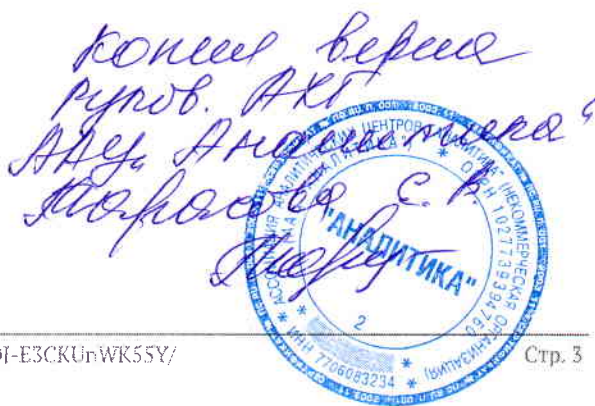 копия верна
руков. АХГ
ААЦ „Аналитика“
Тарасова С. В.
АССОЦИАЦИЯ АНАЛИТИЧЕСКИХ ЦЕНТРОВ "АНАЛИТИКА" (НЕКОММЕРЧЕСКАЯ ОРГАНИЗАЦИЯ)
ААЦ "АНАЛИТИКА" * ОГРН 1027739394760
"АНАЛИТИКА"
2
* ИНН 7706083234 *
OJ-E3CKUnWK55Y/
Стр. 3